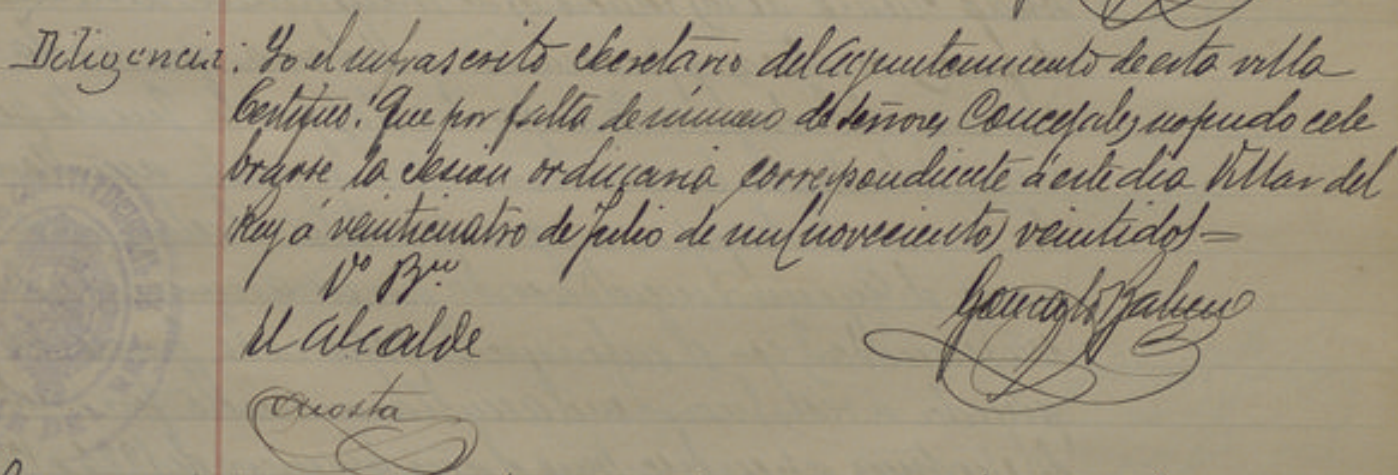 Diligencia: Yo el infrascrito Secretario del Ayuntamiento de esta villa
Certifico: Que por falta de número de señores Concejales no pudo cele
brarse la Sesion ordinaria correspondiente á este dia Villar del
Rey á veinticuatro de Julio de mil novecientos veintidos=
Vº Bº
El Alcalde
Gonzalo
Acosta